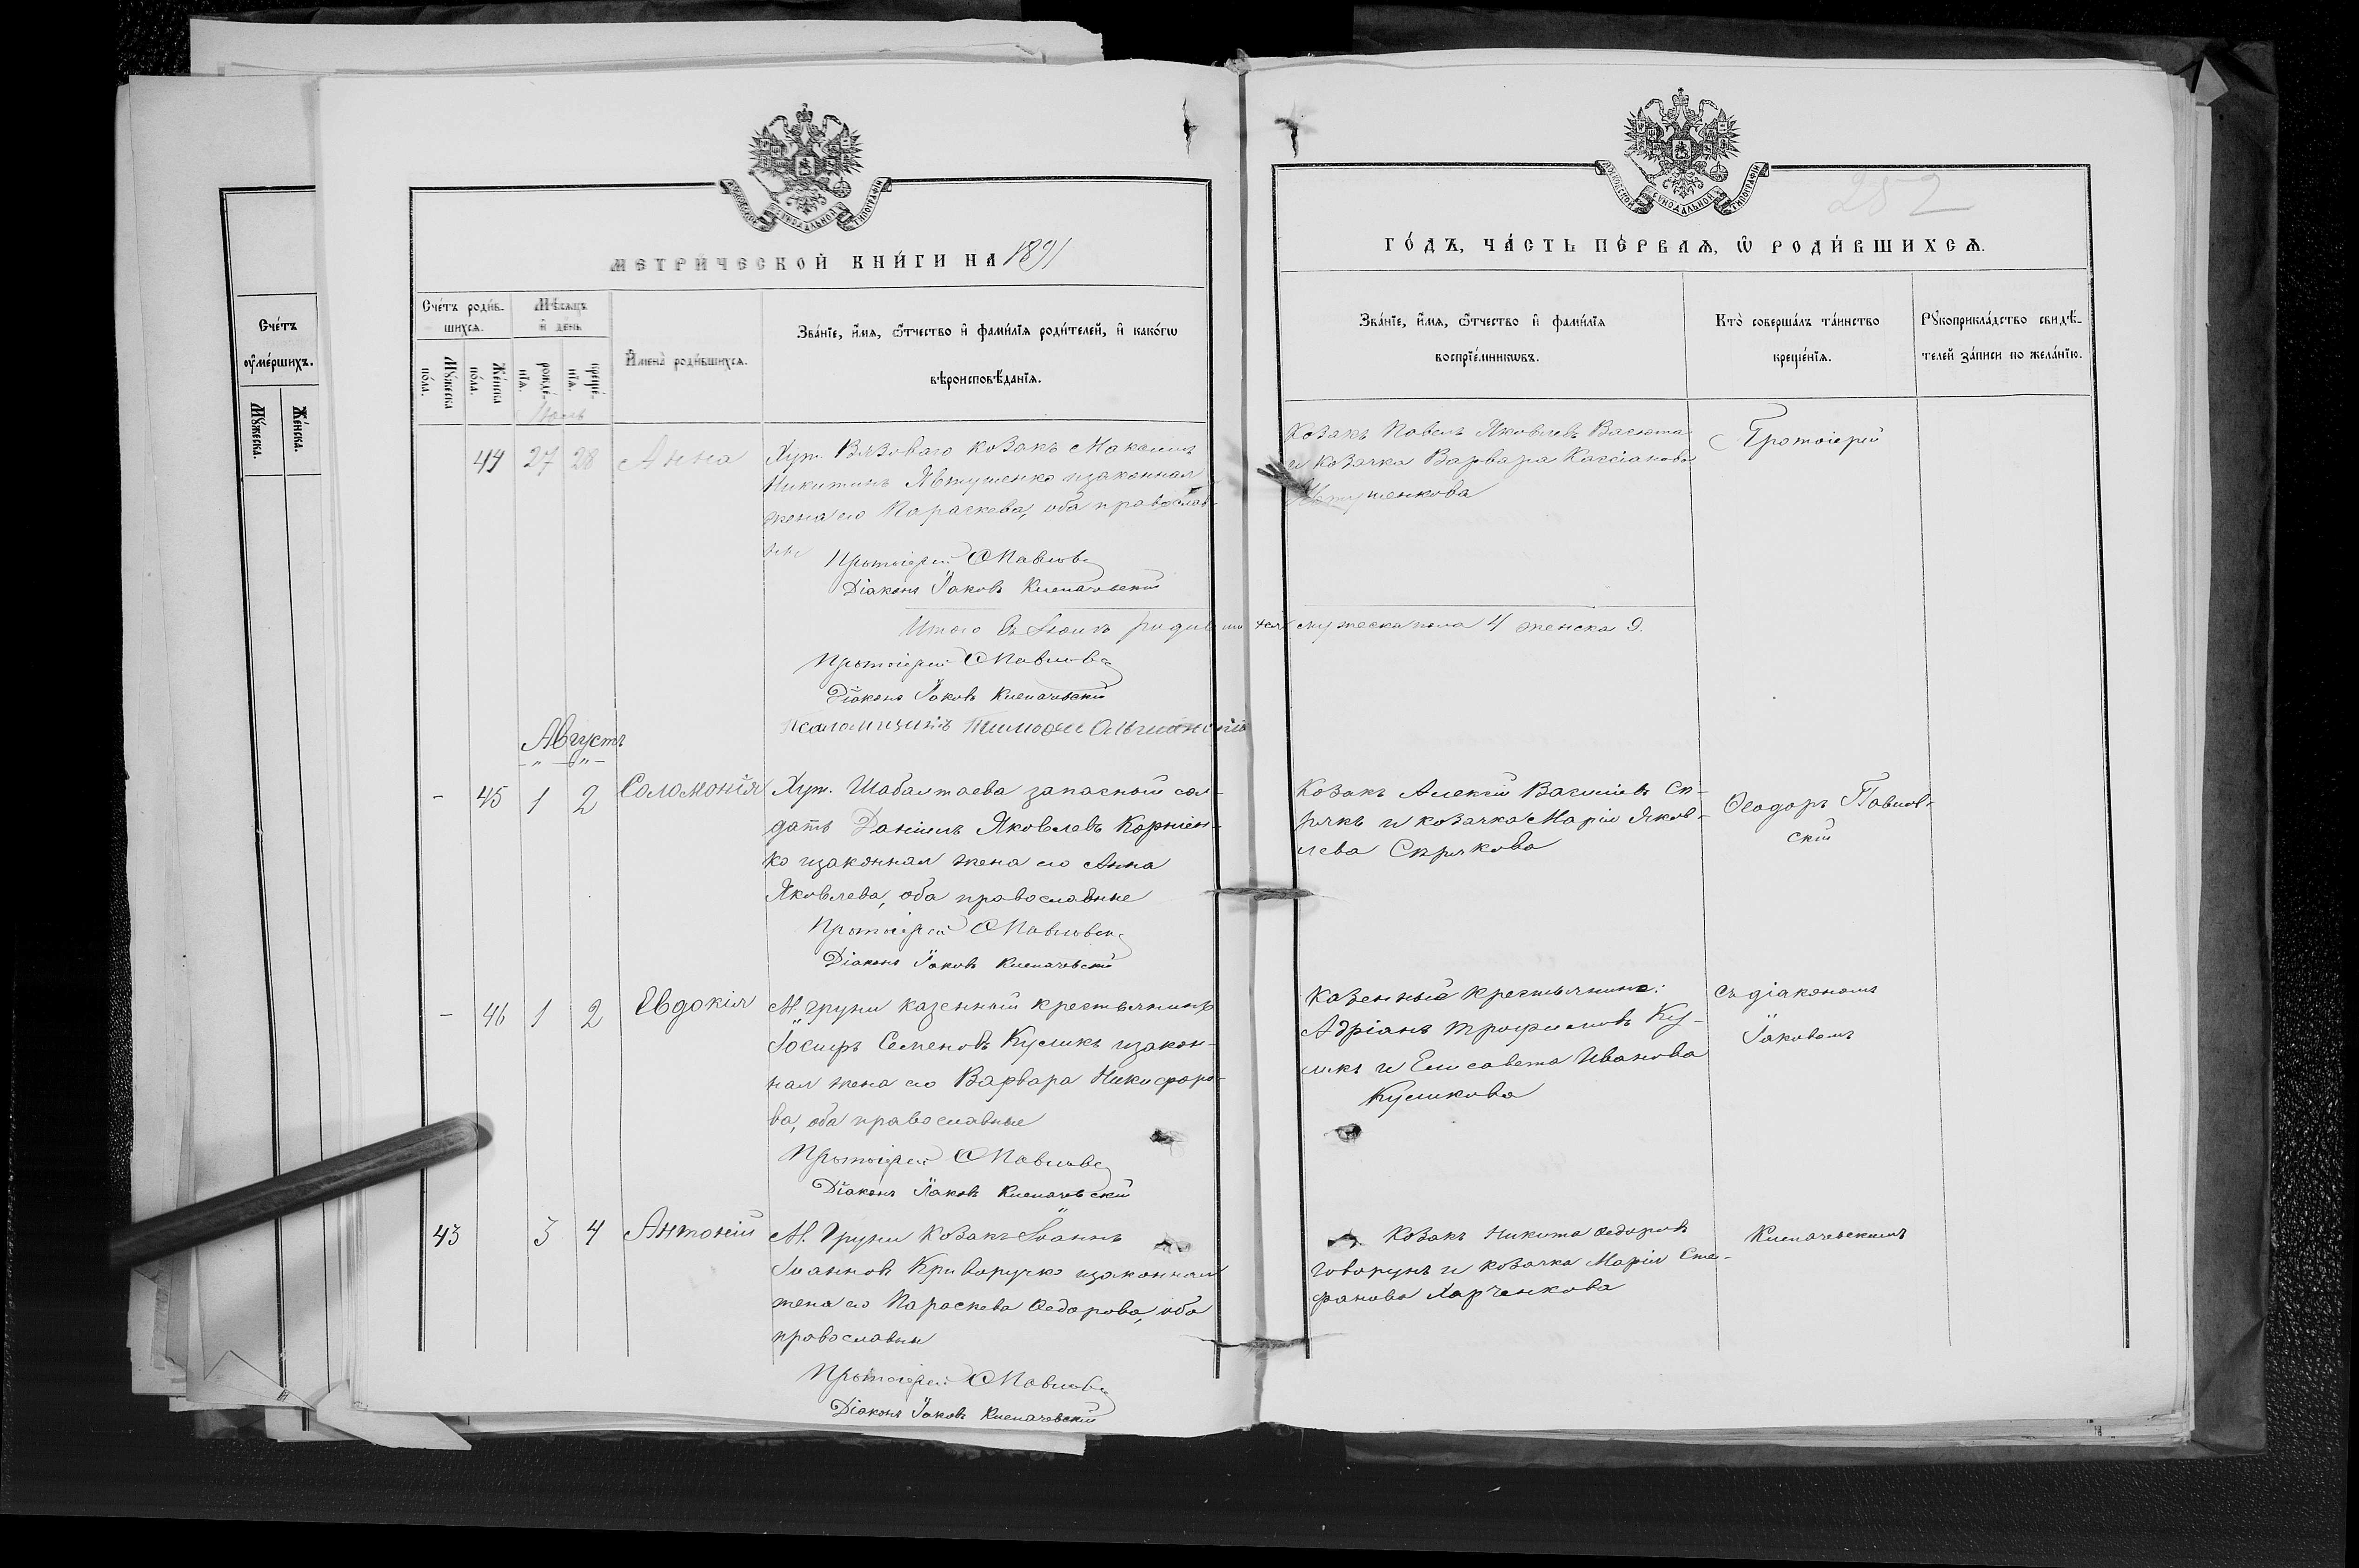 МЕТРИ́ЧЕСКОЙ КНИ́ГИ НА 1891
Сче́тъ роди́в-
шихся.
Мѣ́сяцъ
и҆ де́нь
Му́жеска
по́ла.
Же́нска
по́ла.
рожде́-
нїя.
креще́-
нїя.
И҆мена̀ роди́вшихся.
Зва́нїе, и҆́мя, ѻ҆́тчество и҆ фами́лїя роди́телей, и҆ како́гѡ
вѣроисповѣ́данїя.
Іюль
44 27 28 Анна
Хут. Вязоваго козакъ Максимъ
Никитинъ Явтушенко и законная
жена его Параскева, оба православ-
ные
Протоіерей Ѳ Павловс
Діаконъ Іаковъ Клепачевскій
Итого въ Іюлѣ родившихся мужеска пола 4 женска 9.
Протоіерей Ѳ Павловс
Діаконъ Іаковъ Клепачевскій
Псаломщикъ Тимофей
Августъ
- 45 1 2 Соломонія
Хут. Шабалтаева запасный сол-
датъ Даніилъ Яковлевъ Корніен-
ко и законная жена его Анна
Яковлева, оба православные
Протоіерей Ѳ Павловск
Діаконъ Іаковъ Клепачевскій
- 46 1 2 Евдокія
М. Груни казенный крестьянинъ
Іосифъ Семеновъ Куликъ и закон-
ная жена его Варвара Никифоро-
ва, оба православные
Протоіерей Ѳ Павловс
Діаконъ Іаковъ Клепачевскій
43 3 4 Антоній
М. Груни козакъ Іоаннъ
Іоанновъ Криворучко и законная
жена его Параскева Ѳедорова, оба
православны
Протоіерей Ѳ Павловс
Діаконъ Іаковъ Клепачевскій
252
ГО́ДЪ, ЧА́СТЬ ПЕ́РВАЯ, Ѡ҆ РОДИ́ВШИХСЯ.
Зва́нїе, и҆́мя, ѻ҆́тчество и҆ фами́лїя
воспрїе́мникѡвъ.
Кто̀ соверша́лъ та́инство
креще́нїя.
Рꙋкоприкла́дство свидѣ́-
телей за́писи по жела́нїю.
Козакъ Павелъ Яковлевъ Васюта
и козачка Варвара Кассіанова
Явтушенкова
Протоіерей
Козакъ Алексій Василіевъ Ск-
рякъ и козачка Марія Яков-
лева Скрякова
Ѳеодоръ Павлов-
скій
Казенные крестьяне:
Адріанъ Трофимовъ Ку-
ликъ и Елисавета Иванова
Куликова
съ діакономъ
Іаковомъ
Козакъ Никита Ѳедоровъ
Говорунъ и козачка Марія Сте-
фанова Харченкова
Клепачевскимъ
Сче́тъ
ᲂу҆ме́ршихъ.
Му́жеска.
Же́нска.